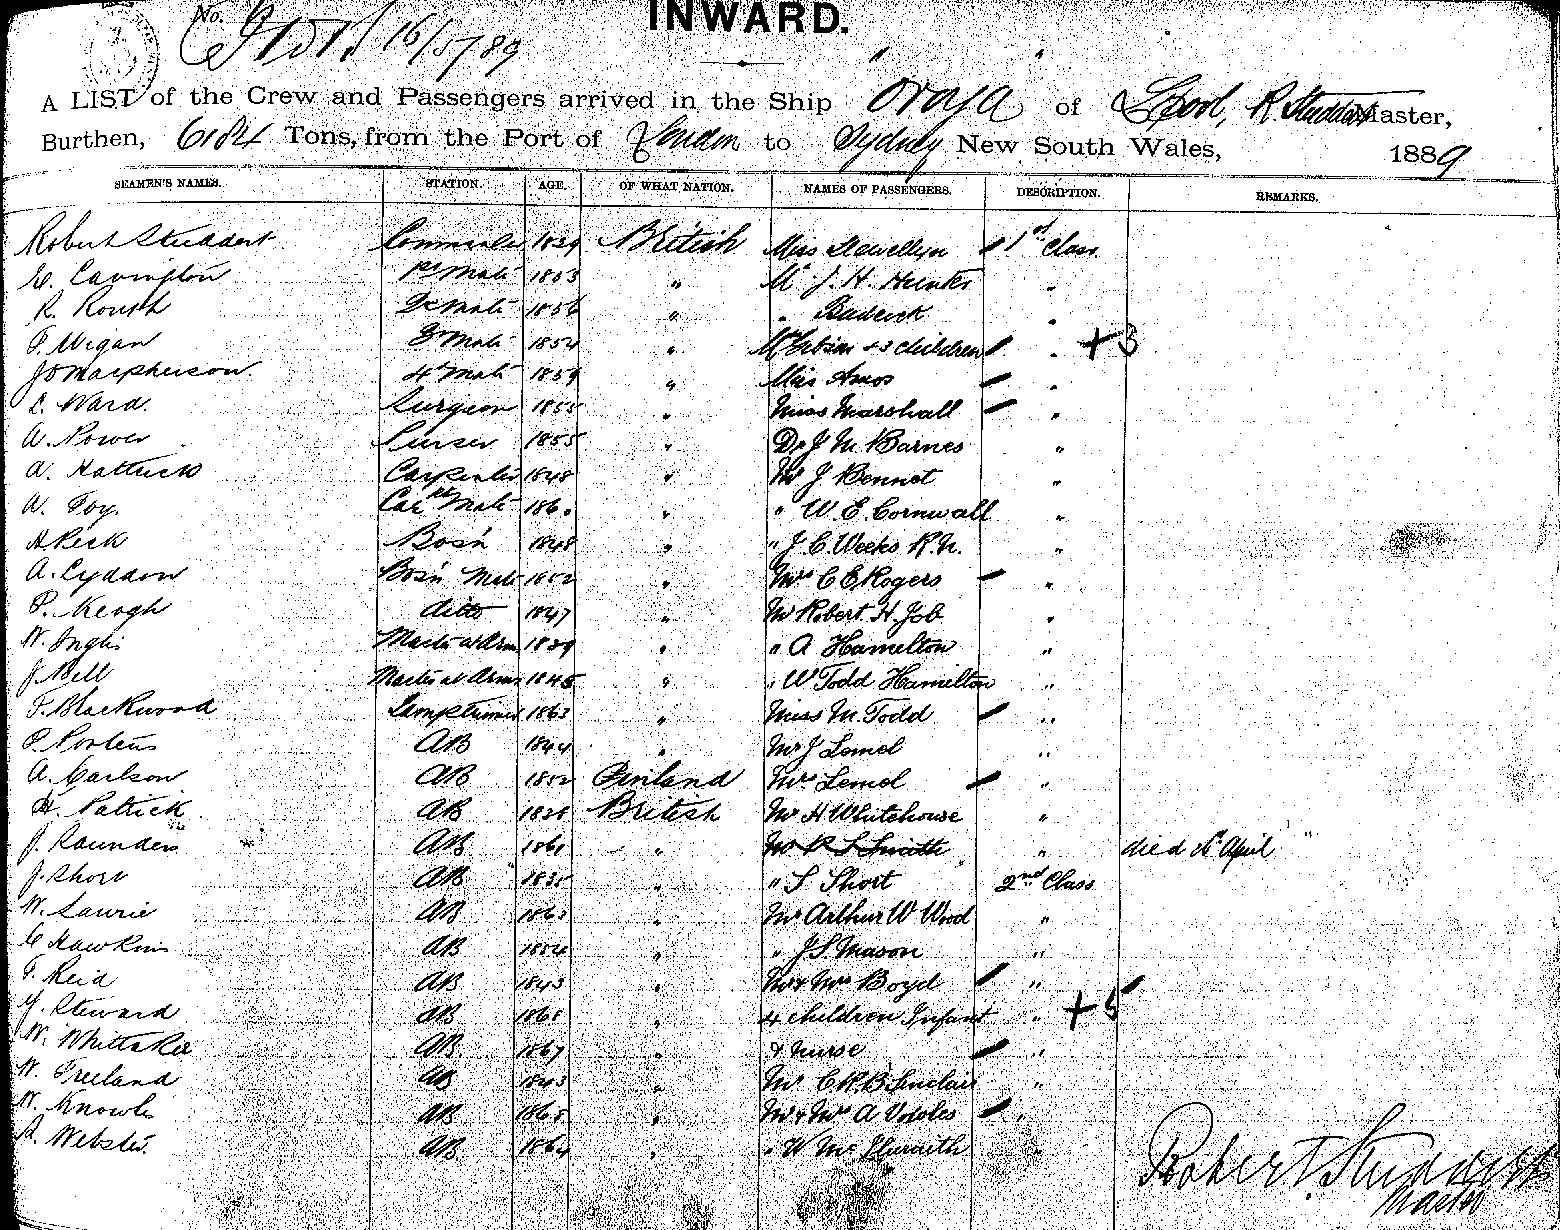 INWARD.
No. 16/5/89
A LIST of the Crew and Passengers arrived in the Ship Oroya of Lpool, R. Studdert Master,
Burthen, 6184 Tons, from the Port of London to Sydney New South Wales, 1889
SEAMEN'S NAMES. STATION. AGE. OF WHAT NATION. NAMES OF PASSENGERS. DESCRIPTION. REMARKS.
Robert Studdert 1829 British Miss Llewellyn 1st Class
E. Covington 1st Mate 1853 " Mr J. H. Hunter "
R. Routh 2d Mate 1856 " " Badcock "
P. Wigan 3 Mate 1854 " + 3 children " +3
J O Macpherson 4th Mate 1859 " Miss Amos "
L. Ward. Surgeon 1855 " Miss Marshall "
A. Power Purser 1855 " Dr J. M. Barnes "
A. Hattrick Carpenter 1848 " Mr J Bennet "
A. Foy. Carptr Mate 1860 " " W. E. Cornwall "
A Peck Bosn 1848 " " J. C. Weeks R.N. "
A. Lyddon Bosn Mate 1852 " Mrs C E Rogers "
P. Keogh ditto 1847 " Mr Robert H. Job "
W. Inglis Master at Arms 1839 " " A Hamelton "
J Bell Master at Arms 1845 " " W Todd Hamilton "
F. Blackwood Lamptrimmer 1863 " Miss M. Todd "
P. Porteus AB 1844 " Mr J Lemel "
A. Carlson AB 1852 Finland Mrs Lemel "
H. Patrick AB 1828 British Mr H Whitehouse "
J. Saunders AB 1861 " Mr R S Smith " died April
J. Short AB 1835 " " S Short 2nd Class
W. Laurie AB 1863 " Mr Arthur W Wood "
C Hawkins AB 1854 " " J S Mason "
T. Reid AB 1843 " Mr & Mrs Boyd "
Y. Steward AB 1865 " 4 children Infant " +5
W. Whittaker AB 1867 " & nurse "
W. Freeland AB 1843 " Mr C. R. B. Sinclair "
W. Knowles AB 1865 " Mr & Mrs A Vowles "
A. Webster. AB 1864 " " W
Robert Studdert
Master